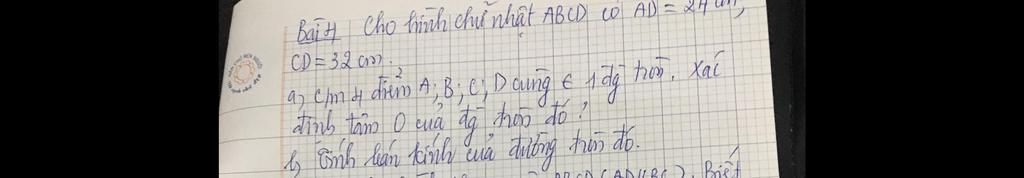 Bài 4 Cho hình chữ nhật ABCD có AD = 24 cm,
CD = 32 cm.
a, c/m 4 điểm A; B; C; D cùng ∈ 1 đg tròn. Xác
định tâm O của đg tròn đó?
b, Tính bán kính của đường tròn đó.
ABCD (AD // BC). Biết